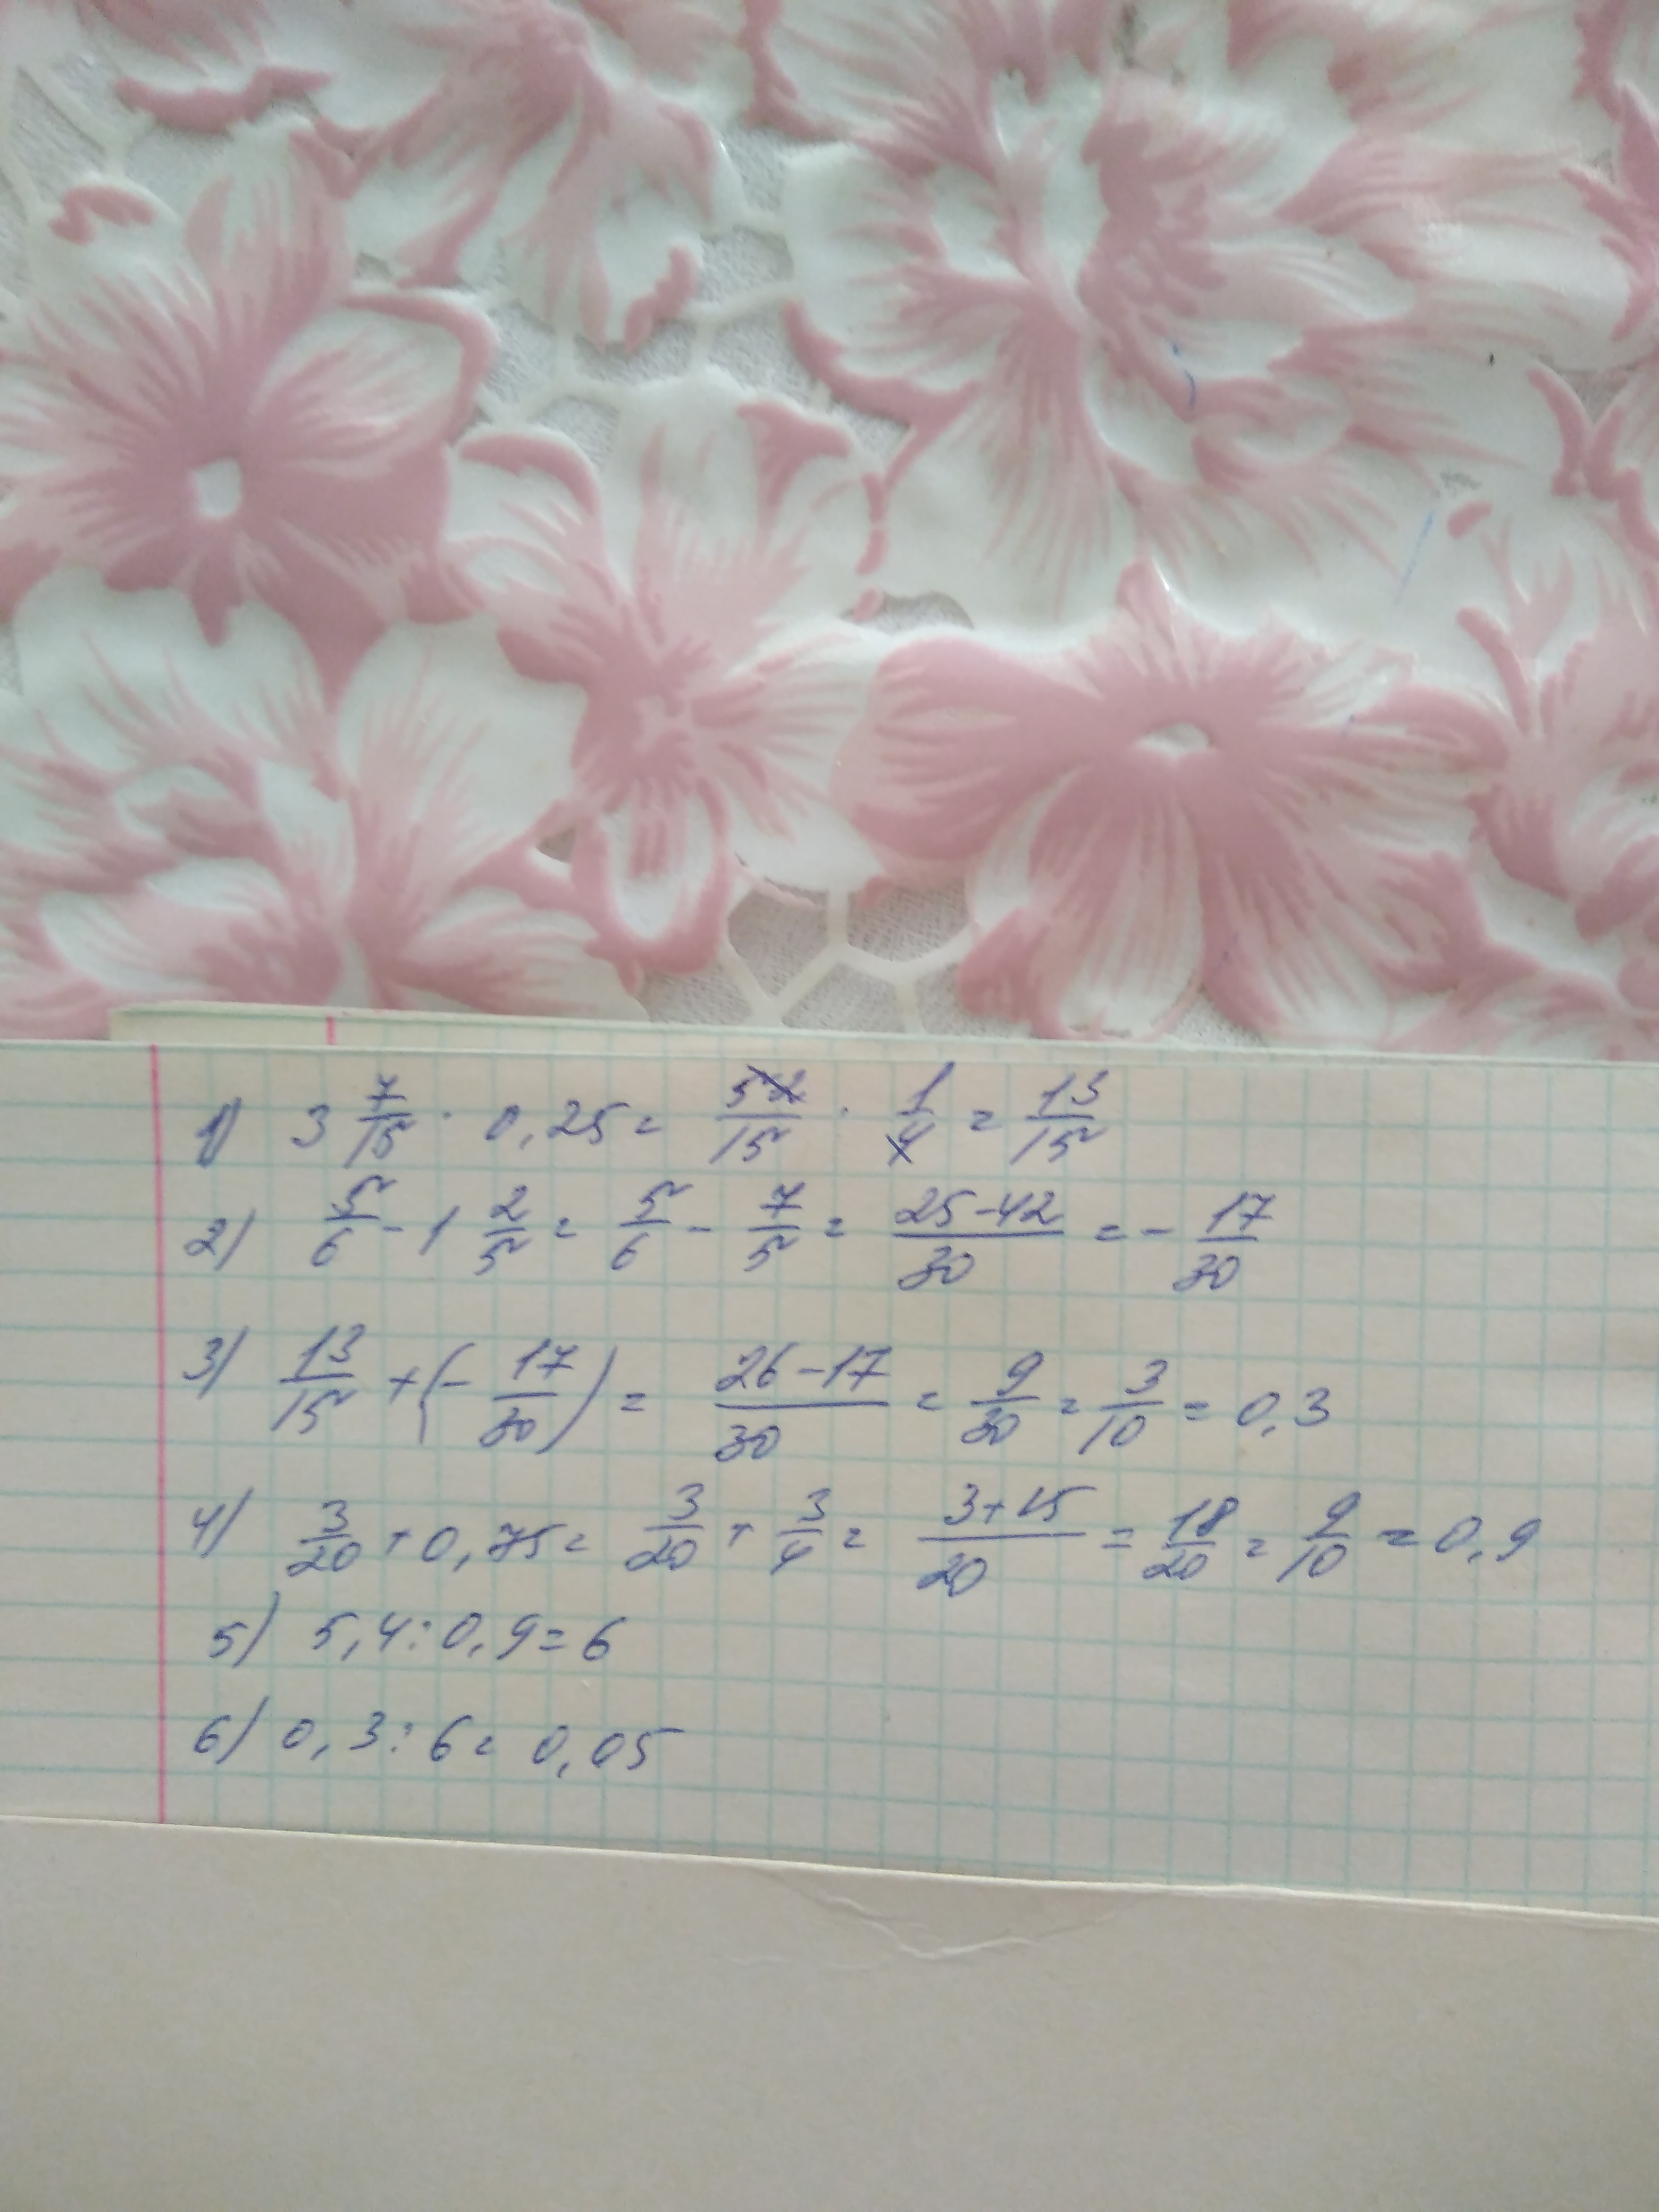 1) 3 7/15 · 0,25 = 52/15 · 1/4 = 13/15
2) 5/6 - 1 2/5 = 5/6 - 7/5 = 25-42/30 = - 17/30
3) 13/15 + (- 17/30) = 26-17/30 = 9/30 = 3/10 = 0,3
4) 3/20 + 0,75 = 3/20 + 3/4 = 3+15/20 = 18/20 = 9/10 = 0,9
5) 5,4 : 0,9 = 6
6) 0,3 : 6 = 0,05